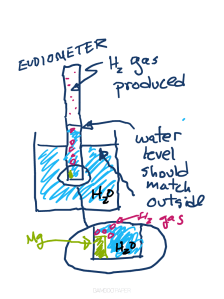 EUDIOMETER
H2 gas
produced
water
level
should
match
outside
H2O
H2 gas
Mg
H2O